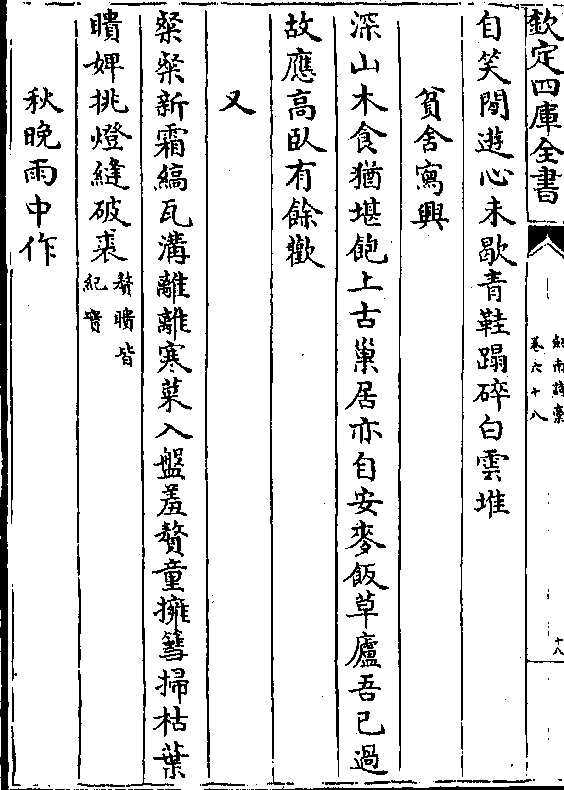 欽定四庫全書
劍南詩稾
卷六十八
十八
自笑閒遊心未歇青鞋蹋碎白雲堆
貧舍寫興
深山木食猶堪飽上古巢居亦自安麥飯草廬吾已過
故應高臥有餘歡
又
粲粲新霜縞瓦溝離離寒菜入盤羞贅童擁篲掃枯葉
瞶婢挑燈縫破裘贅瞶皆
紀實
秋晚雨中作